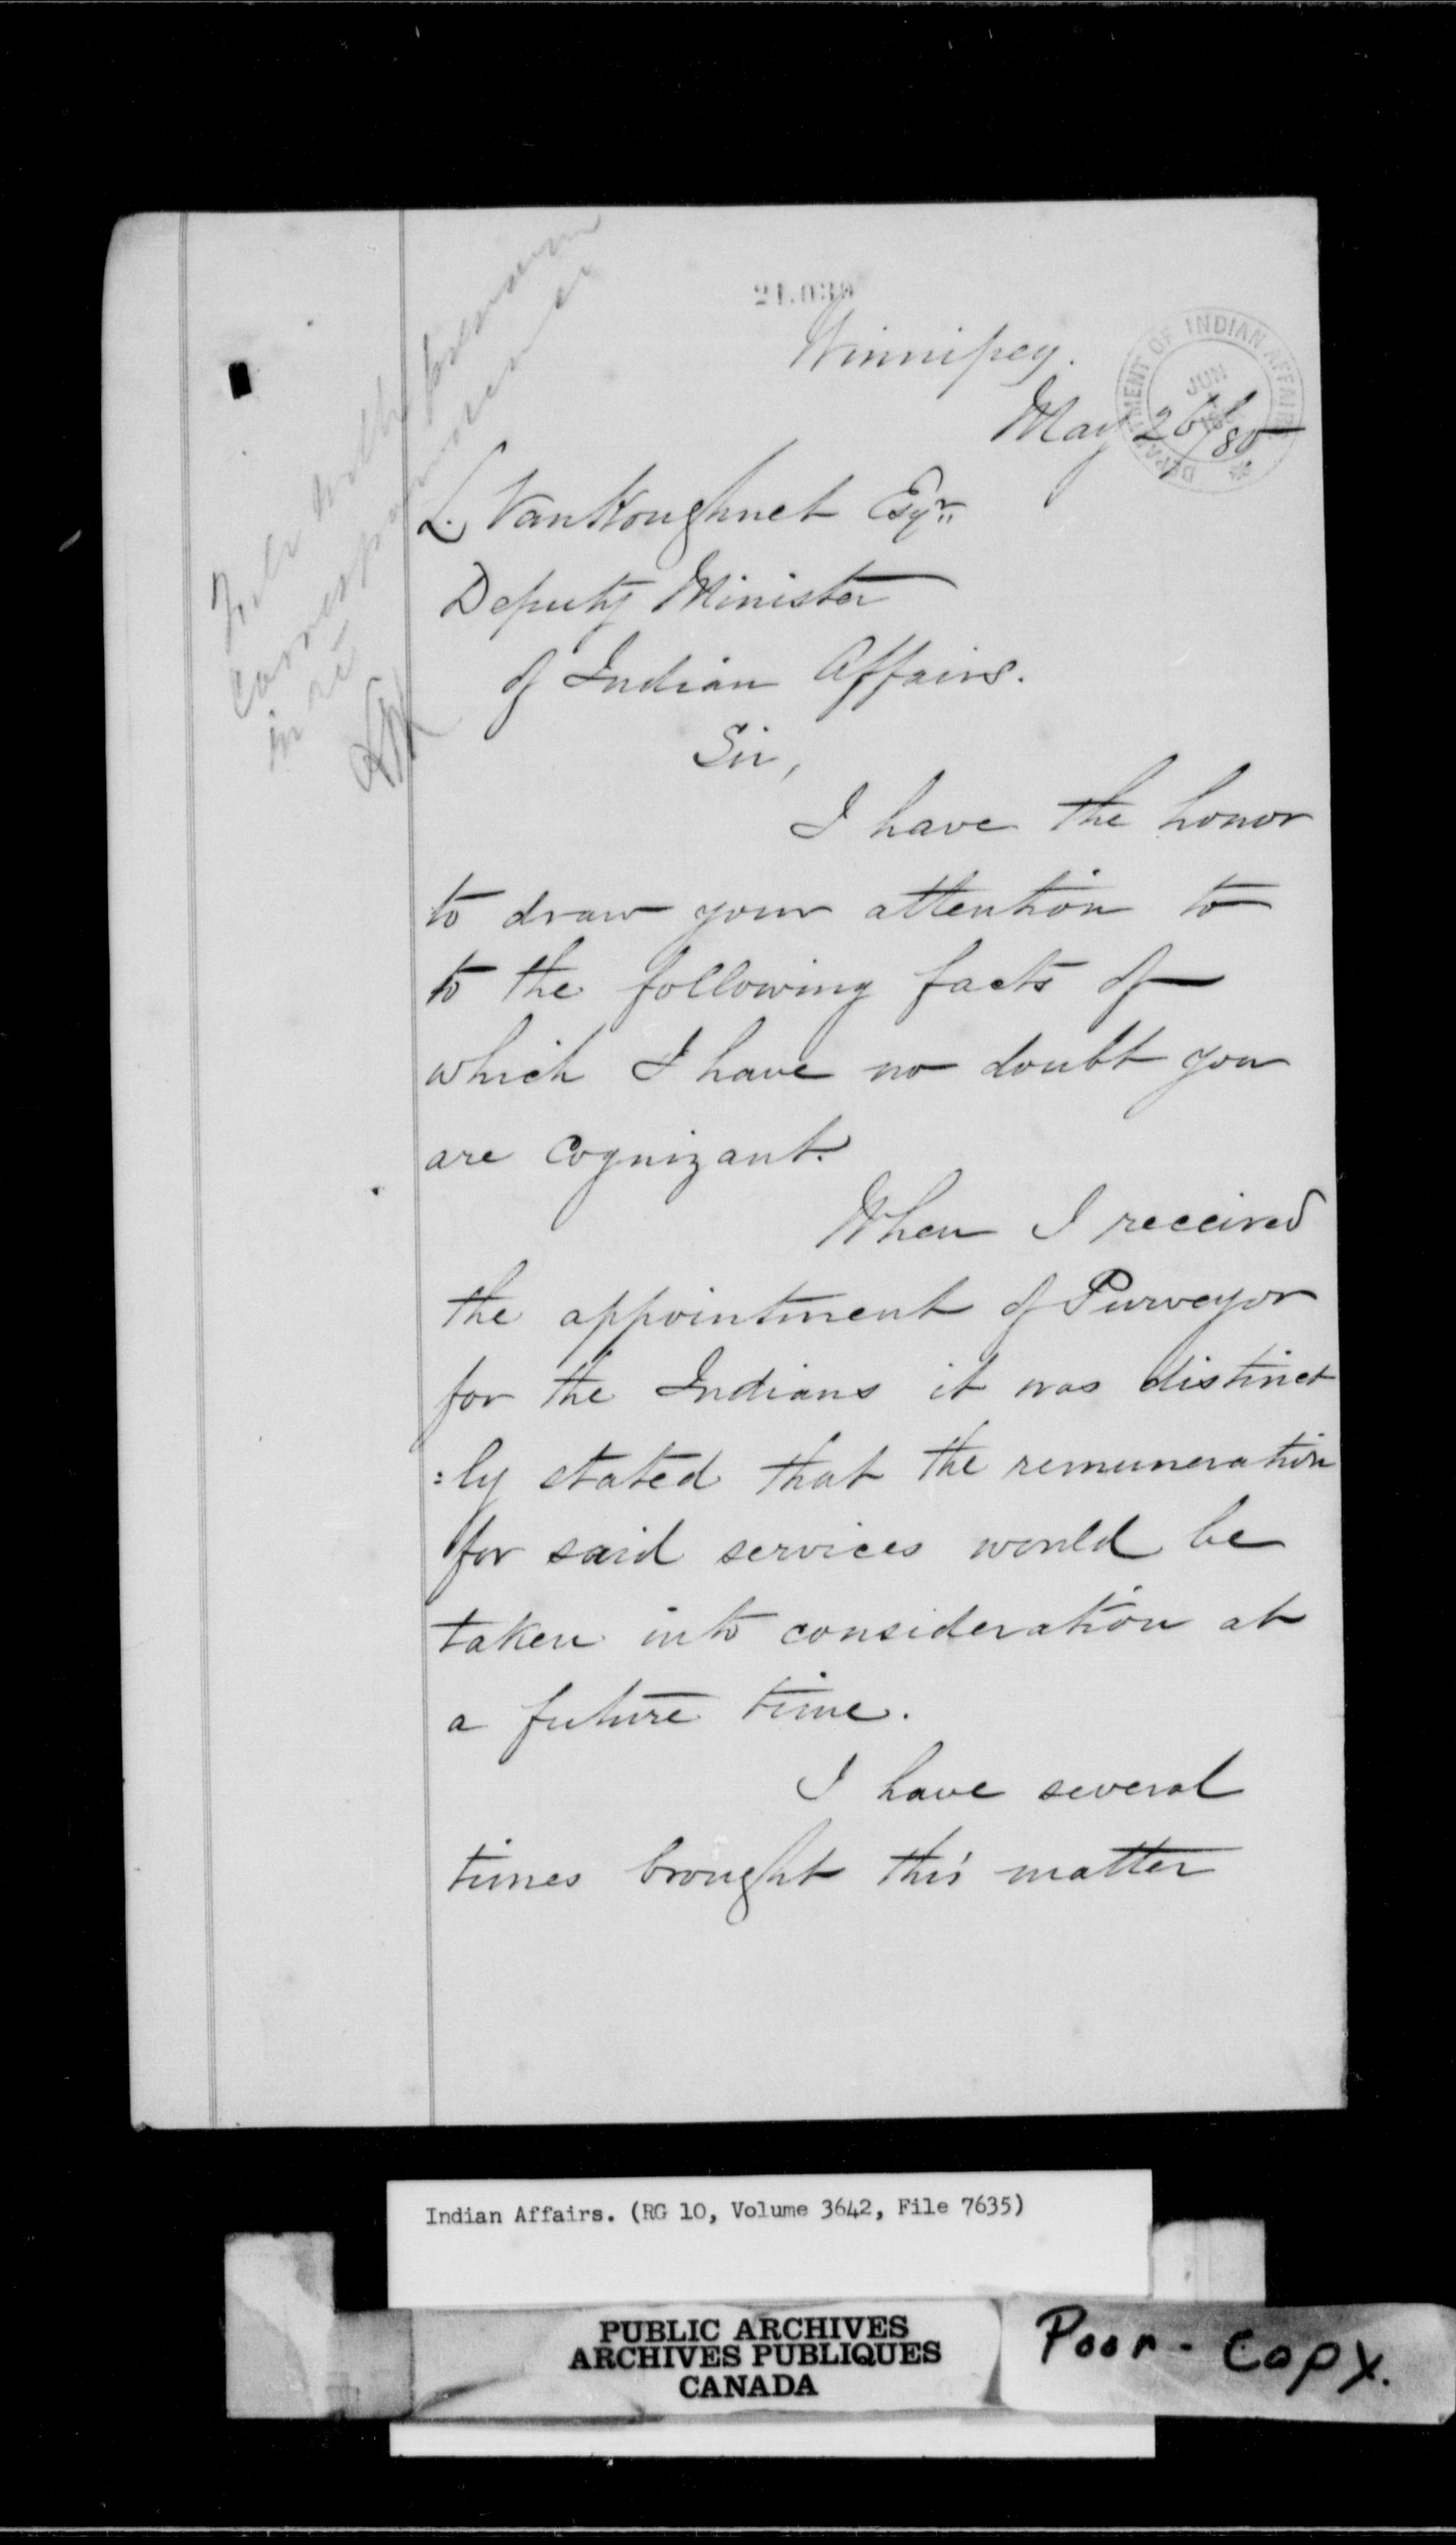 Winnipeg.
May 26th/80
DEPARTMENT OF INDIAN AFFAIRS
JUN
File with previous
correspondence
in re
LVK
L. VanKoughnet Esqr.
Deputy Minister
of Indian Affairs.
Sir,
I have the honor
to draw your attention to
to the following facts of
which I have no doubt you
are cognizant.
When I received
the appointment of Purveyor
for the Indians it was distinct
:ly stated that the remuneration
for said services would be
taken into consideration at
a future time.
I have several
times brought this matter
Indian Affairs. (RG 10, Volume 3642, File 7635)
PUBLIC ARCHIVES
ARCHIVES PUBLIQUES
CANADA
Poor-copy.